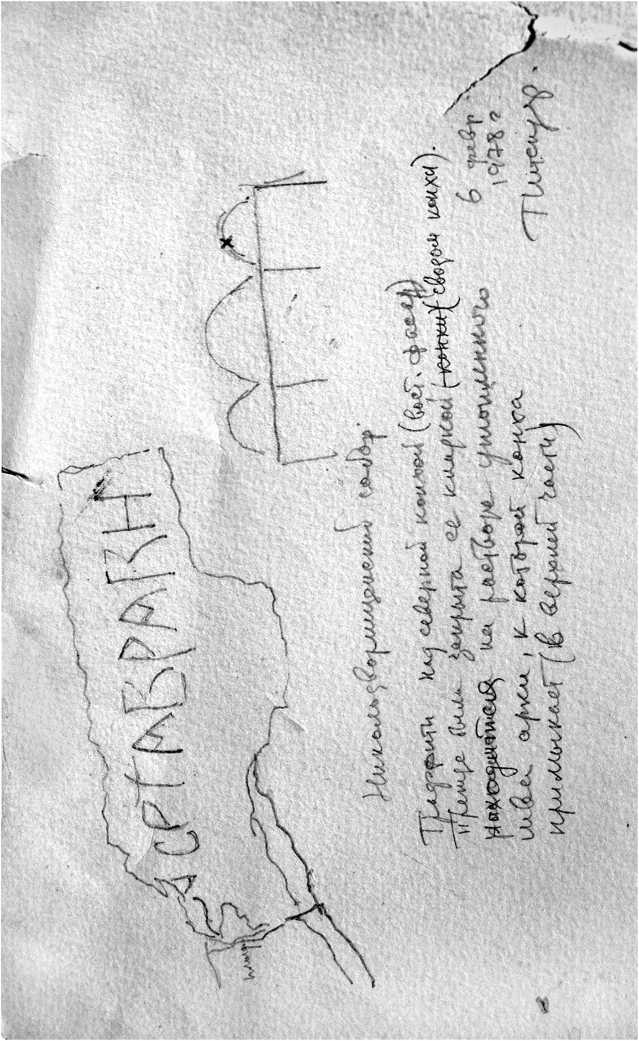 СРТАВРАКН
Никольдворищенский собор.
Граффити над северной конхой (вост. фасад)
Прежде были закрыта ее кладкой (конхи) (сводом конхи).
находится на растворе утолщенного
шва арки, к которой конха
примыкает (в верхней части)
6 февр.
1978 г